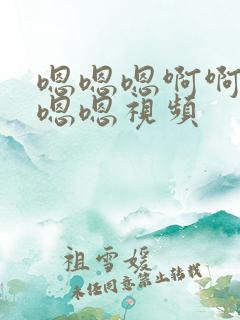 嗯嗯嗯啊啊
嗯嗯視頻
祖雪媛
未经同意禁止转载